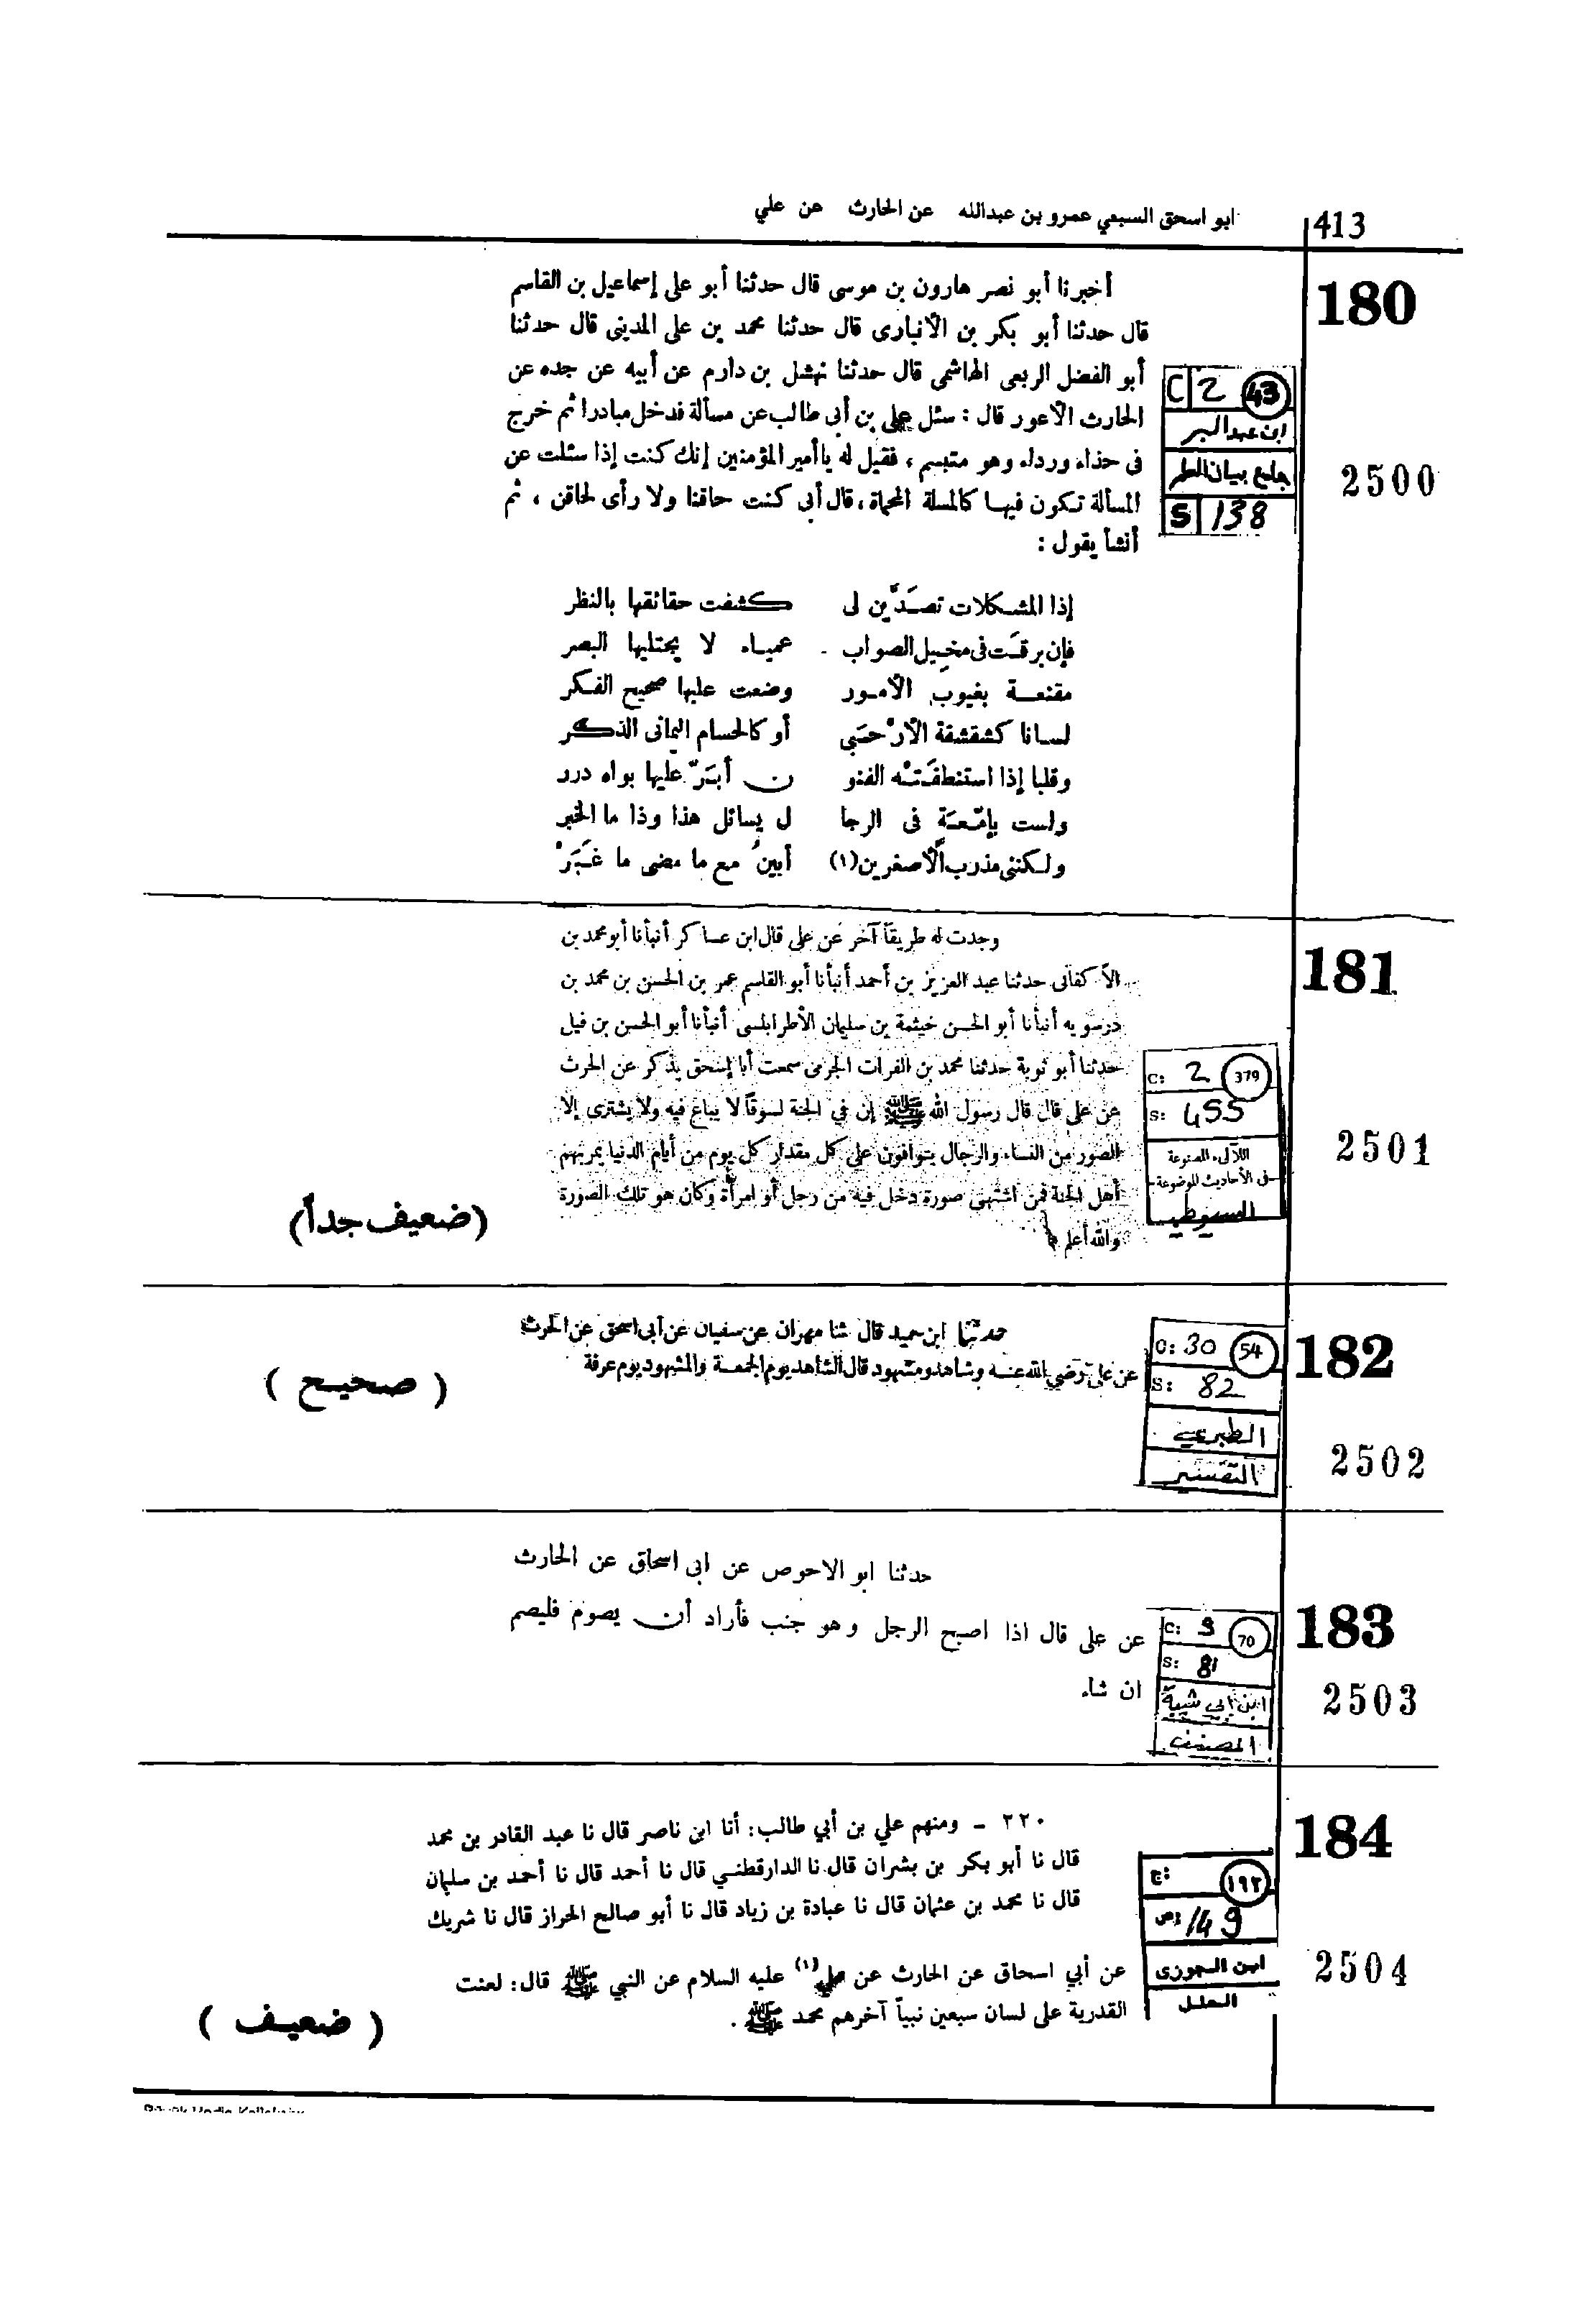 ابو اسحق السبعي عمرو بن عبدالله عن الحارث عن علي
413
180
أخبرنا أبو نصر هارون بن موسى قال حدثنا أبو على إسماعيل بن القاسم
قال حدثنا أبو بكر بن الأنبارى قال حدثنا محمد بن على المدينى قال حدثنا
أبو الفضل الربعى الهاشمى قال حدثنا نهشل بن دارم عن أبيه عن جده عن
الحارث الأعور قال : سئل على بن أبى طالب عن مسألة فدخل مبادرا ثم خرج
فى حذاء ورداء وهو متبسم ، فقيل له يا أمير المؤمنين إنك كنت إذا سئلت عن
المسألة تكون فيها كالمسلة المحماة ، قال أبى كنت حاقنا ولا رأى لحاقن ، ثم
أنشأ يقول :
C 2 43
ابن عبد البر
جامع بيان العلم
S 138
2500
إذا المشكلات تصدَّين لى كشفت حقائقها بالنظر
فإن برقت فى مخيل الصواب عمياء لا يجتليها البصر
مقنعة بغيوب الأمور وضعت عليها صحيح الفكر
لسانا كشقشقة الأرْحبَي أو كالحسام اليمانى الذكر
وقلبا إذا استنطفَتْه الفنو ن أبَرّ عليها بواه درر
ولست بإمّعة فى الرجا ل يسائل هذا وذا ما الخبر
ولكننى مذرب الأصغرين (١) أبين مع ما مضى ما غَبَرْ
181
وجدت له طريقاً آخر عن على قال ابن عساكر أنبأنا أبو محمد بن
الأكفانى حدثنا عبد العزيز بن أحمد أنبأنا أبو القاسم عمر بن الحسن بن محمد بن
درستويه أنبأنا أبو الحسن خيثمة بن سليمان الأطرابلسى أنبأنا أبو الحسن بن فيل
حدثنا أبو توبة حدثنا محمد بن الفرات الجرمى سمعت أبا إسحق يذكر عن الحرث
عن على قال قال رسول الله ﷺ إن في الجنة لسوقاً لا يباع فيه ولا يشترى إلا
الصور من النساء والرجال يتوافون على كل مقدار كل يوم من أيام الدنيا يمر بهم
أهل الجنة فمن اشتهى صورة دخل فيه من رجل أو امرأة وكان هو تلك الصورة
والله أعلم
C: 2 379
S: 455
اللآلىء المصنوعة
فى الأحاديث الموضوعة
السيوطي
2501
(ضعيف جداً)
182
حدثنا ابن حميد قال ثنا مهران عن سفيان عن أبى اسحق عن الحرث
عن على رضي الله عنه وشاهد ومشهود قال الشاهد يوم الجمعة والمشهود يوم عرفة
C: 30 54
S: 82
الطبري
التفسير
2502
( صحيح )
183
حدثنا ابو الاحوص عن ابى اسحاق عن الحارث
عن على قال اذا اصبح الرجل وهو جنب فأراد أن يصوم فليصم
ان شاء
C: 3 70
S: 81
ابن ابي شيبة
المصنف
2503
184
٢٢٠ - ومنهم علي بن أبي طالب : أنا ابن ناصر قال نا عبد القادر بن محمد
قال نا أبو بكر بن بشران قال نا الدارقطني قال نا أحمد قال نا أحمد بن سليمان
قال نا محمد بن عثمان قال نا عبادة بن زياد قال نا أبو صالح الخراز قال نا شريك
عن أبي اسحاق عن الحارث عن علي (١) عليه السلام عن النبي ﷺ قال : لعنت
القدرية على لسان سبعين نبياً آخرهم محمد ﷺ .
ج: ١٩٢
ص: 149
ابن الجوزى
العلل
2504
( ضعيف )